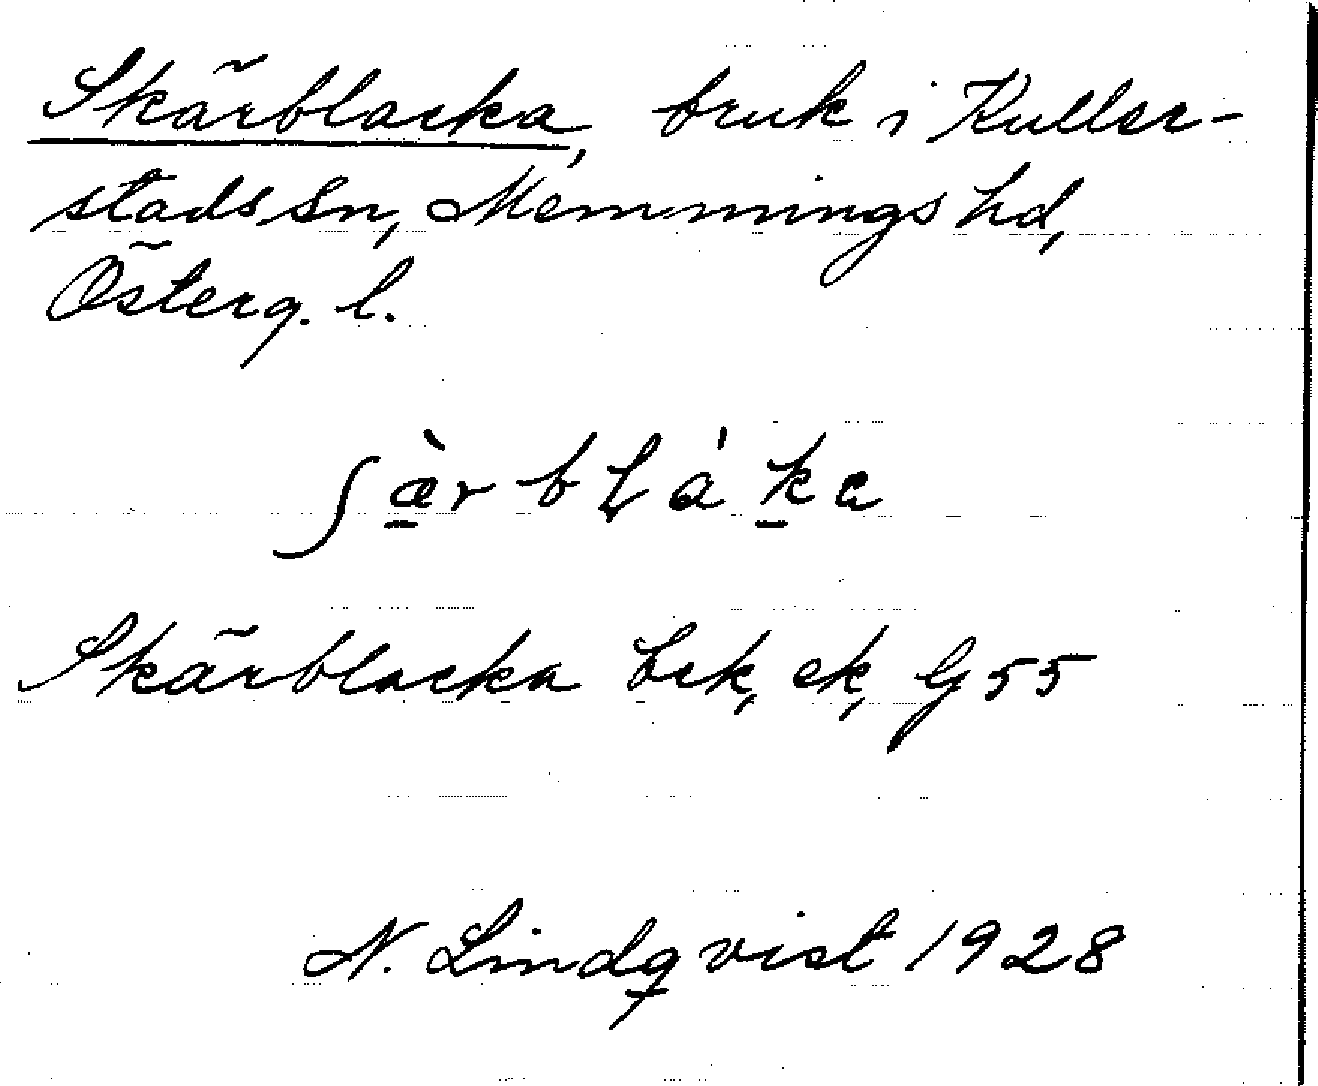 Skärblacka, bruk i Kuller-
stads sn, Memmings hd,
Österg. l.
ʃæ̀rblákа
Skärblacka brk, ek, G 55
N. Lindqvist 1928